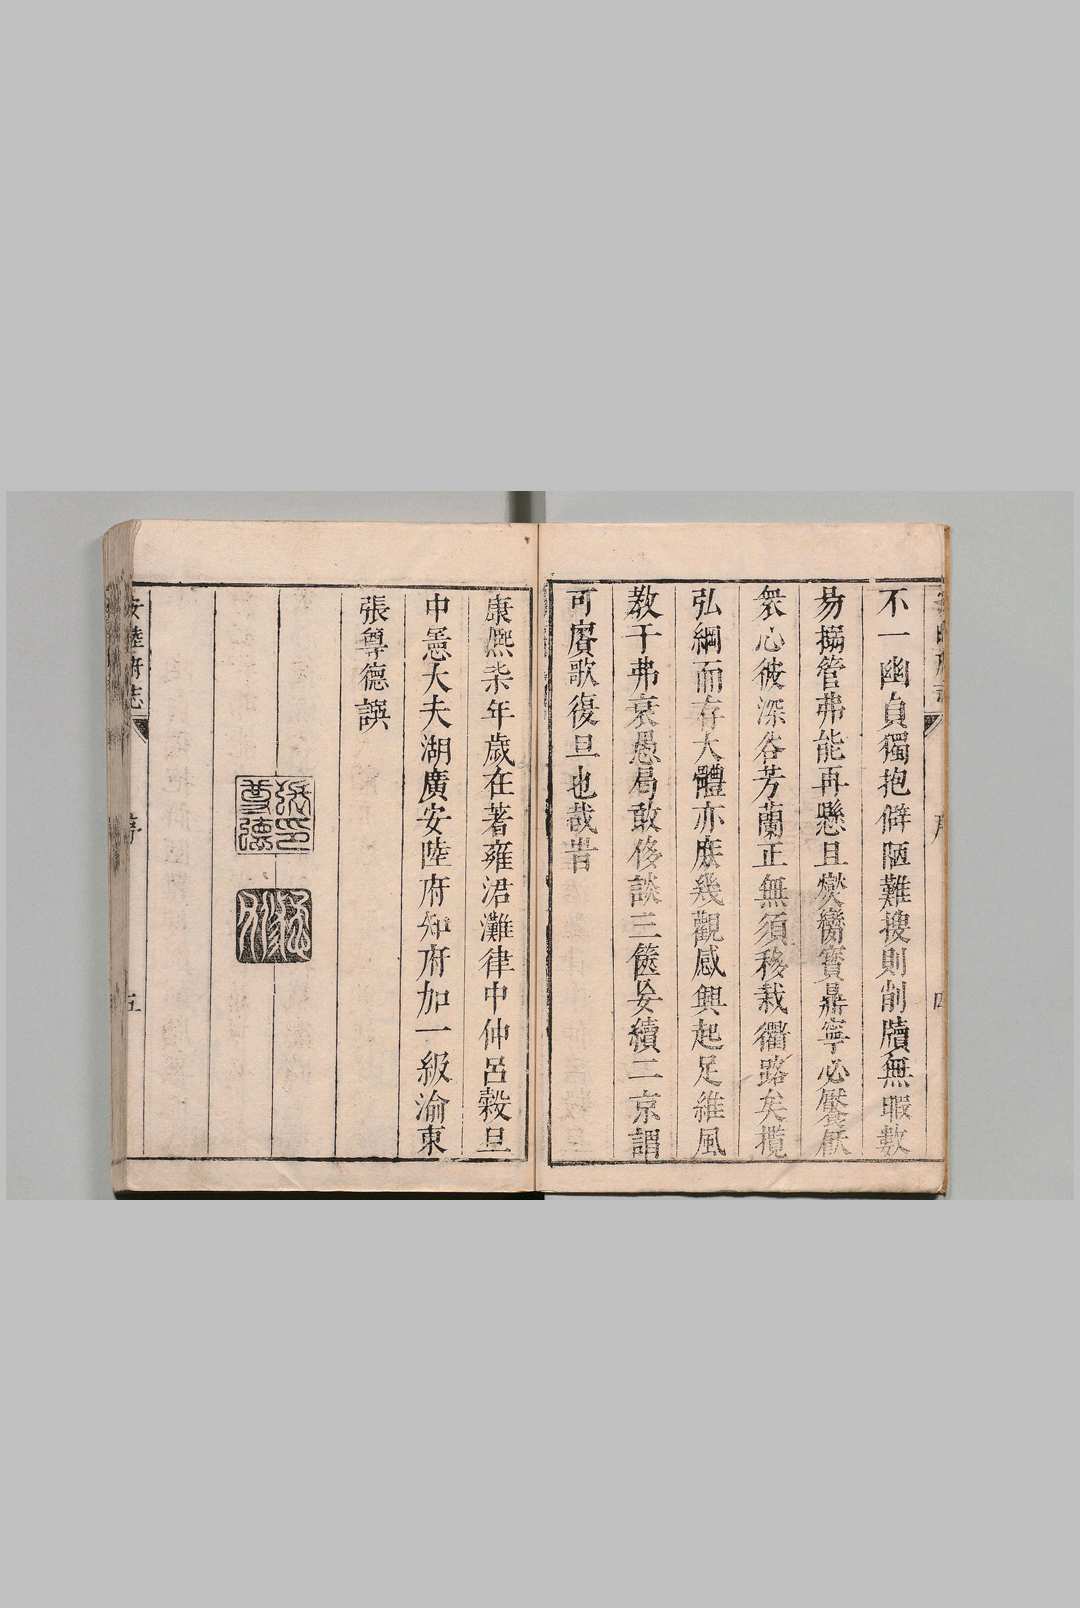 不一幽貞獨抱僻陋難搜則削牘無暇數
易搦管弗能再懸且爕臠寳鼎寧必饜厭
衆心彼深谷芳蘭正無須移栽衢路矣攬
弘綱而存大體亦庶幾觀感興起足維風
教于弗衰愚曷敢侈談三篋妄續二京謂
可賡歌復旦也哉旹
康熈柒年歳在著雍涒灘律中仲呂穀旦
中憲大夫湖廣安陸府知府加一級渝東
張尊德譔
張印尊德
安陸府志
序
五